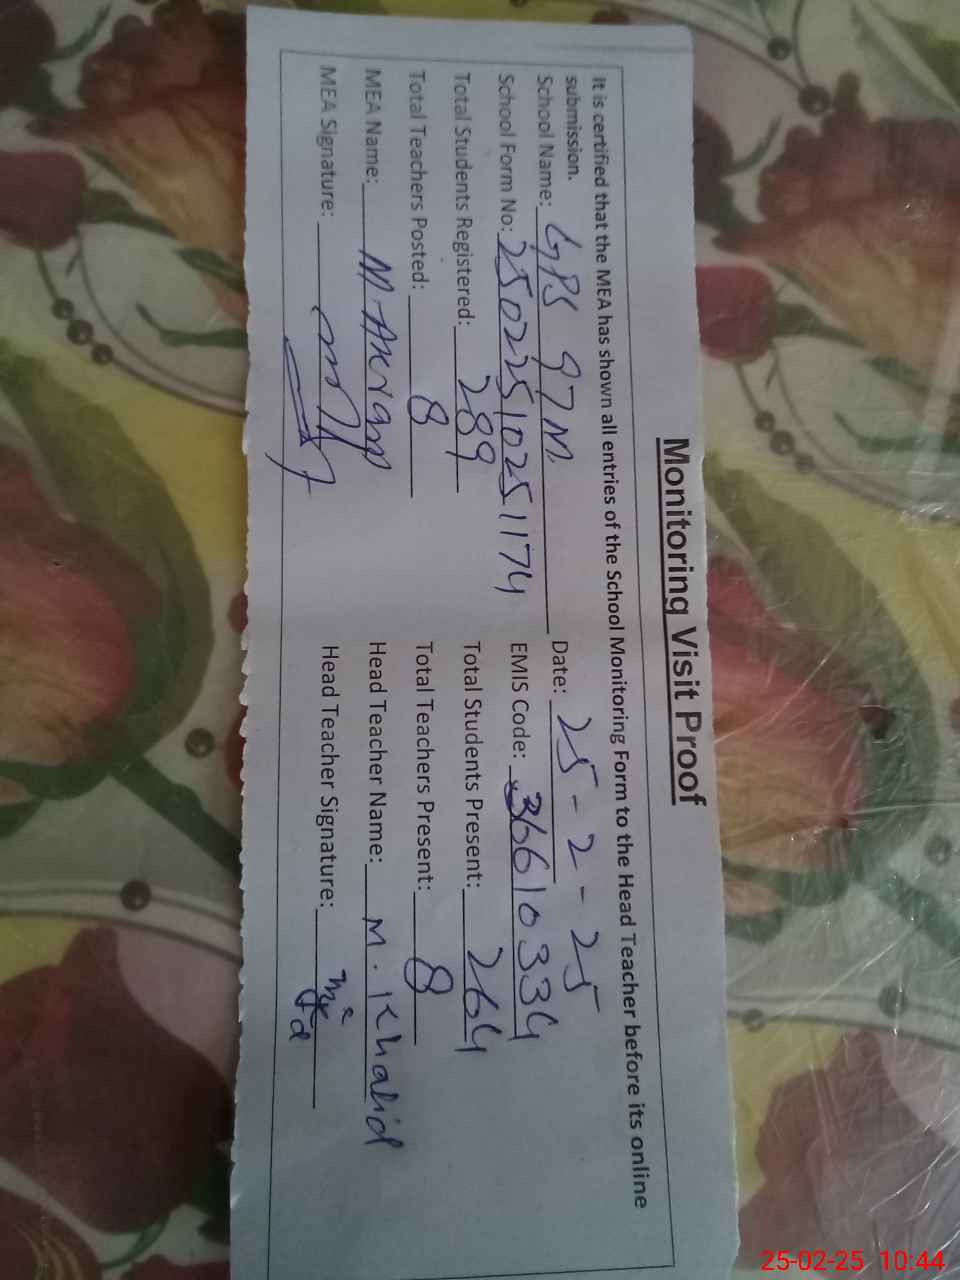 Monitoring Visit Proof
It is certified that the MEA has shown all entries of the School Monitoring Form to the Head Teacher before its online
submission.
School Name: GPS 97M Date: 25-2-25
School Form No: 25022510251174 EMIS Code: 36610334
Total Students Registered: 289 Total Students Present: 264
Total Teachers Posted: 8 Total Teachers Present: 8
MEA Name: M-Akram Head Teacher Name: M. Khalid
MEA Signature: Head Teacher Signature:
25-02-25 10:44